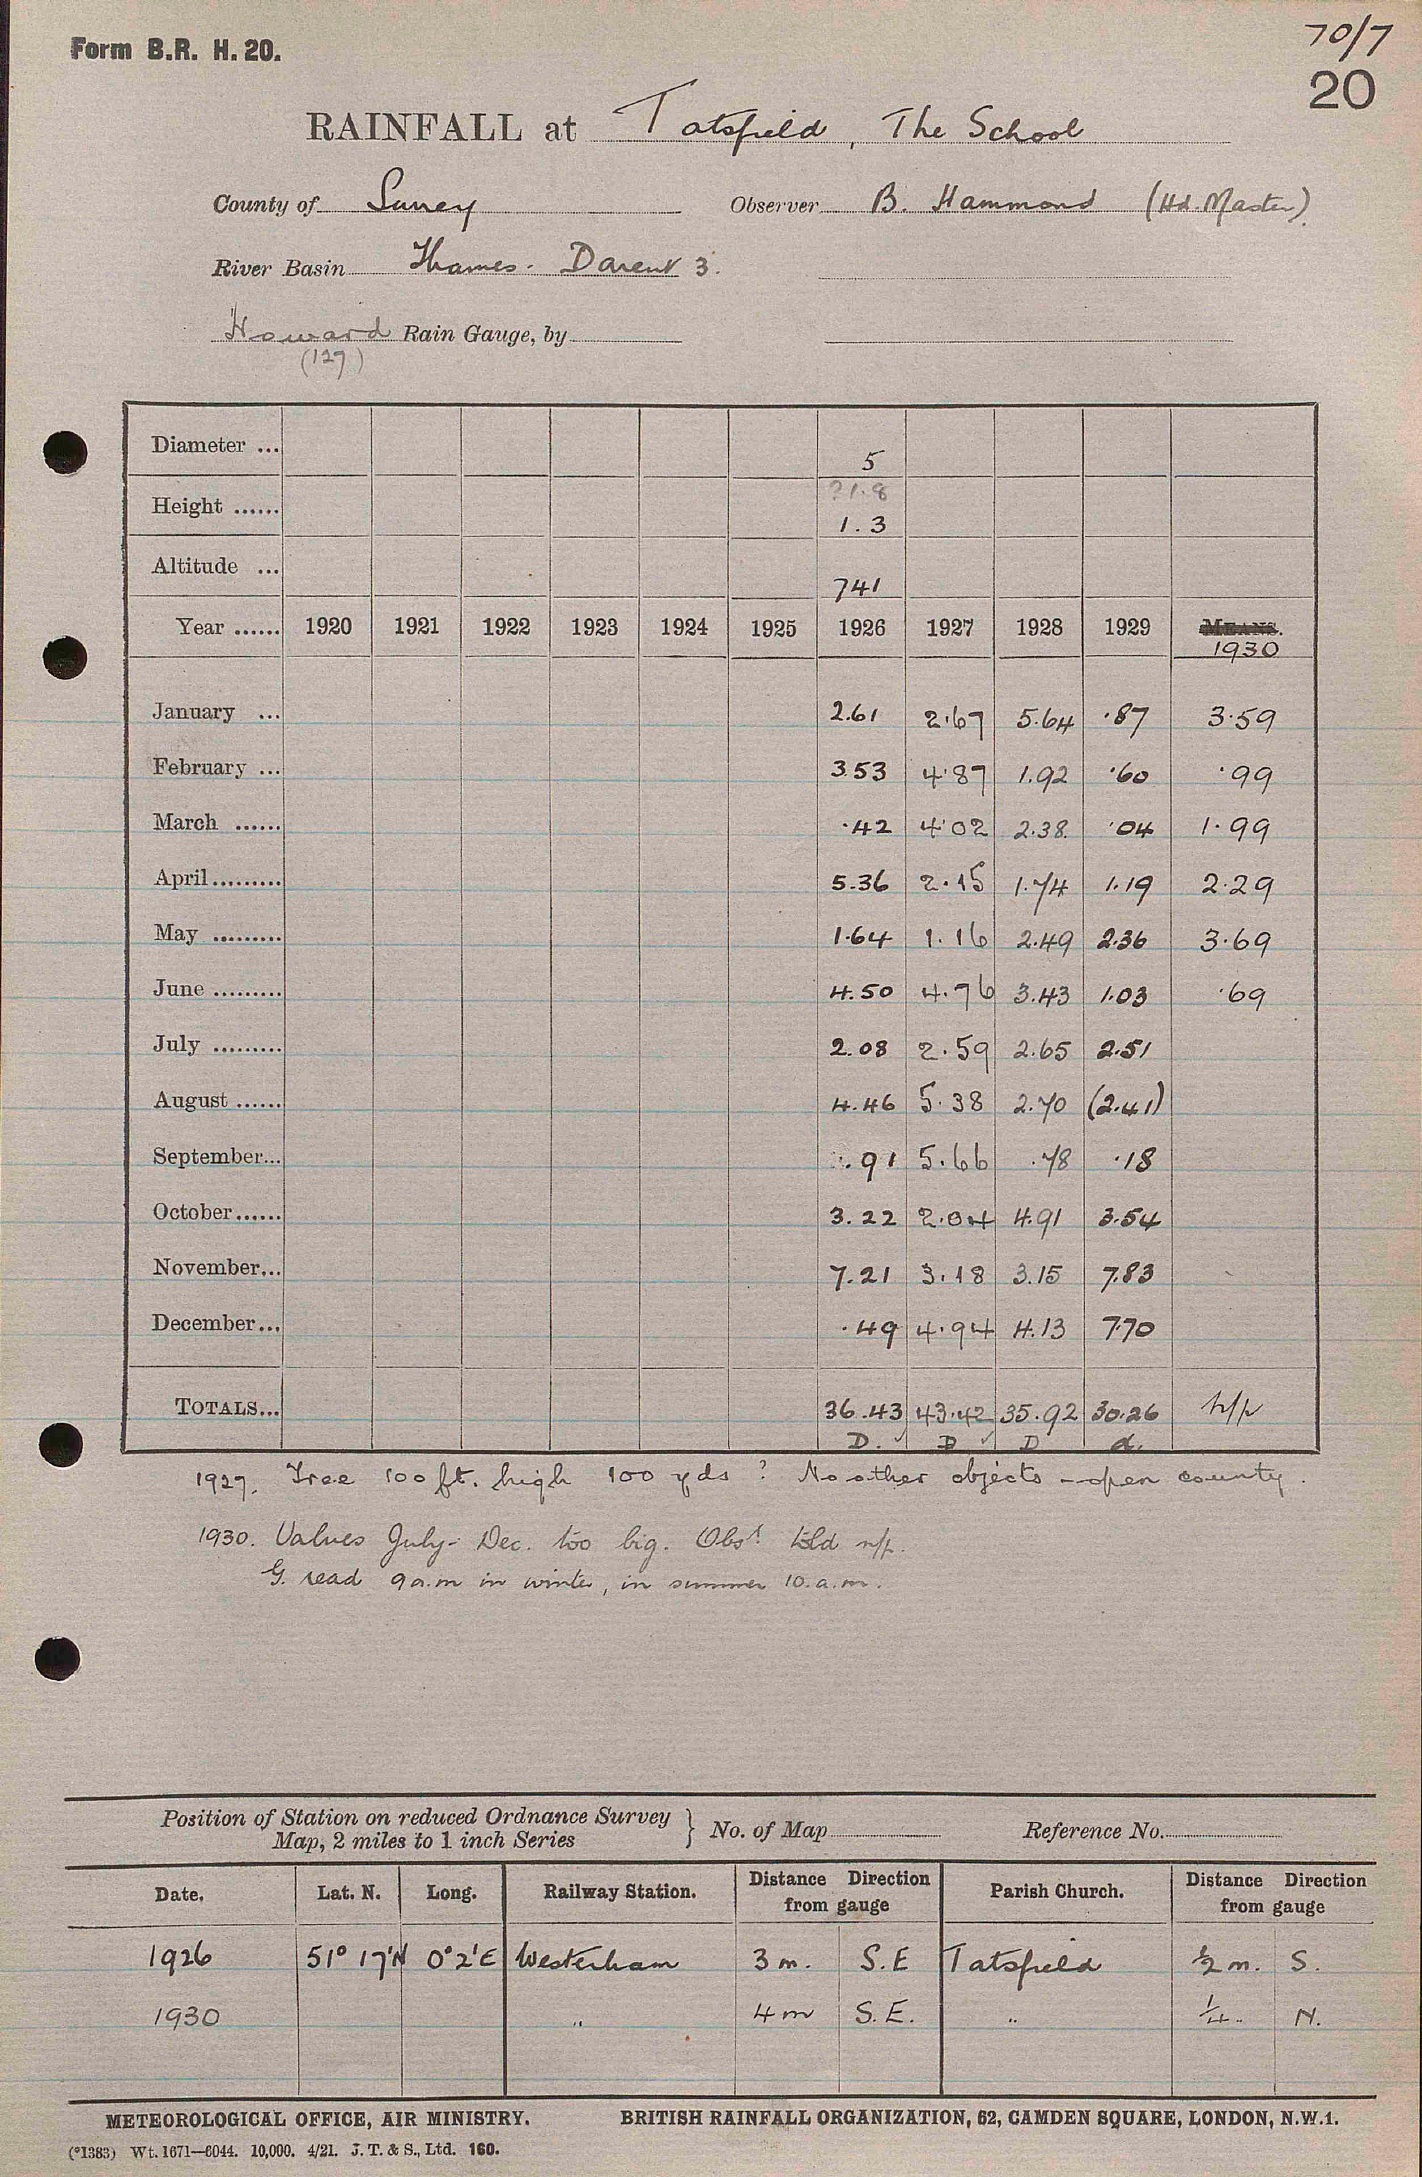 Form B.R. H. 20.
70/7
20
RAINFALL at Tatsfield, The School
County of Surrey Observer B. Hammond (Hd. Master)
River Basin Thames. Darent 3.
Howard Rain Gauge, by
(127)
Diameter ... 5
Height ...... ?1.8
1.3
Altitude ... 741
Year ...... 1920 1921 1922 1923 1924 1925 1926 1927 1928 1929 MEANS.
1930
January ... 2.61 2.67 5.64 .87 3.59
February ... 3.53 4.87 1.92 .60 .99
March ...... .42 4.02 2.38 .04 1.99
April ......... 5.36 2.15 1.74 1.19 2.29
May ......... 1.64 1.16 2.49 2.36 3.69
June ......... 4.50 4.76 3.43 1.03 .69
July ......... 2.08 2.59 2.65 2.51
August ...... 4.46 5.38 2.70 (2.41)
September... .91 5.66 .78 .18
October...... 3.22 2.04 4.91 3.54
November... 7.21 3.18 3.15 7.83
December... .49 4.94 4.13 7.70
TOTALS... 36.43 43.42 35.92 30.26 n/p
D. ✓ D ✓ D d.
1927. Tree 100 ft. high 100 yds ? No other objects - open county.
1930. Values July - Dec. too big. Obsr told n/p.
G. read 9 a.m in winter, in summer 10. a.m.
Position of Station on reduced Ordnance Survey
Map, 2 miles to 1 inch Series } No. of Map Reference No.
Date. Lat. N. Long. Railway Station. Distance Direction from gauge Parish Church. Distance Direction from gauge
1926 51° 17'N 0° 2'E Westerham 3 m. S.E Tatsfield ½ m. S.
1930 " 4 m S.E. " ¼ " N.
METEOROLOGICAL OFFICE, AIR MINISTRY. BRITISH RAINFALL ORGANIZATION, 62, CAMDEN SQUARE, LONDON, N.W.1.
(*1383) Wt. 1671—6044. 10,000. 4/21. J. T. & S., Ltd. 160.